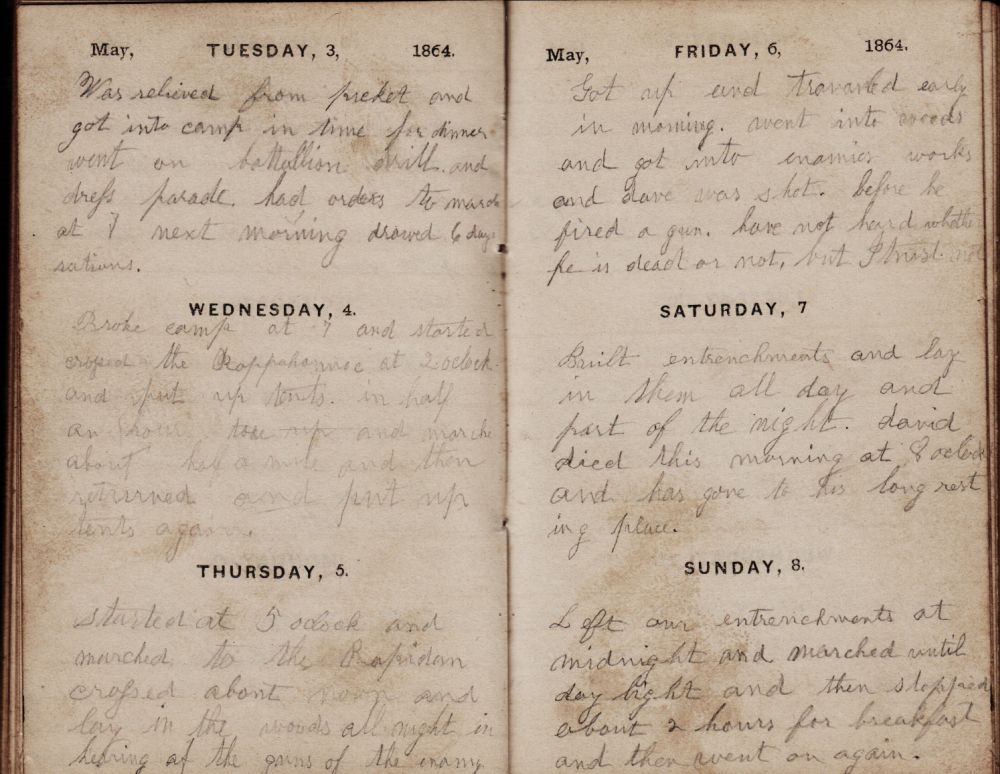 May, TUESDAY, 3, 1864.
Was relieved from picket and
got into camp in time for dinner
went on battellion drill. and
dress parade. had orders to march
at 7 next morning drawed 6 days
rations.
WEDNESDAY, 4.
Broke camp at 7 and started
crosed the Rappahannoc at 2 oclock
and put up tents. in half
an hour up and marche
about half a mile and then
returned and put up
tents again.
THURSDAY, 5.
started at 5 oclock and
marched to the Rapidan
crossed about noon and
lay in the woods all night in
hearing of the guns of the enamy
May, FRIDAY, 6, 1864.
Got up and travarled early
in morning. went into woods
and got into enamies works
and Dave was shot. before he
fired a gun. have not heard whethe
he is dead or not, but I trust not
SATURDAY, 7
Built entrenchments and lay
in them all day and
part of the night. david
died this morning at 8 oclock
and has gone to his long rest
ing place.
SUNDAY, 8.
Left our entrenchments at
midnight and marched until
day light and then stopped
about 2 hours for breakfast
and then went on again.